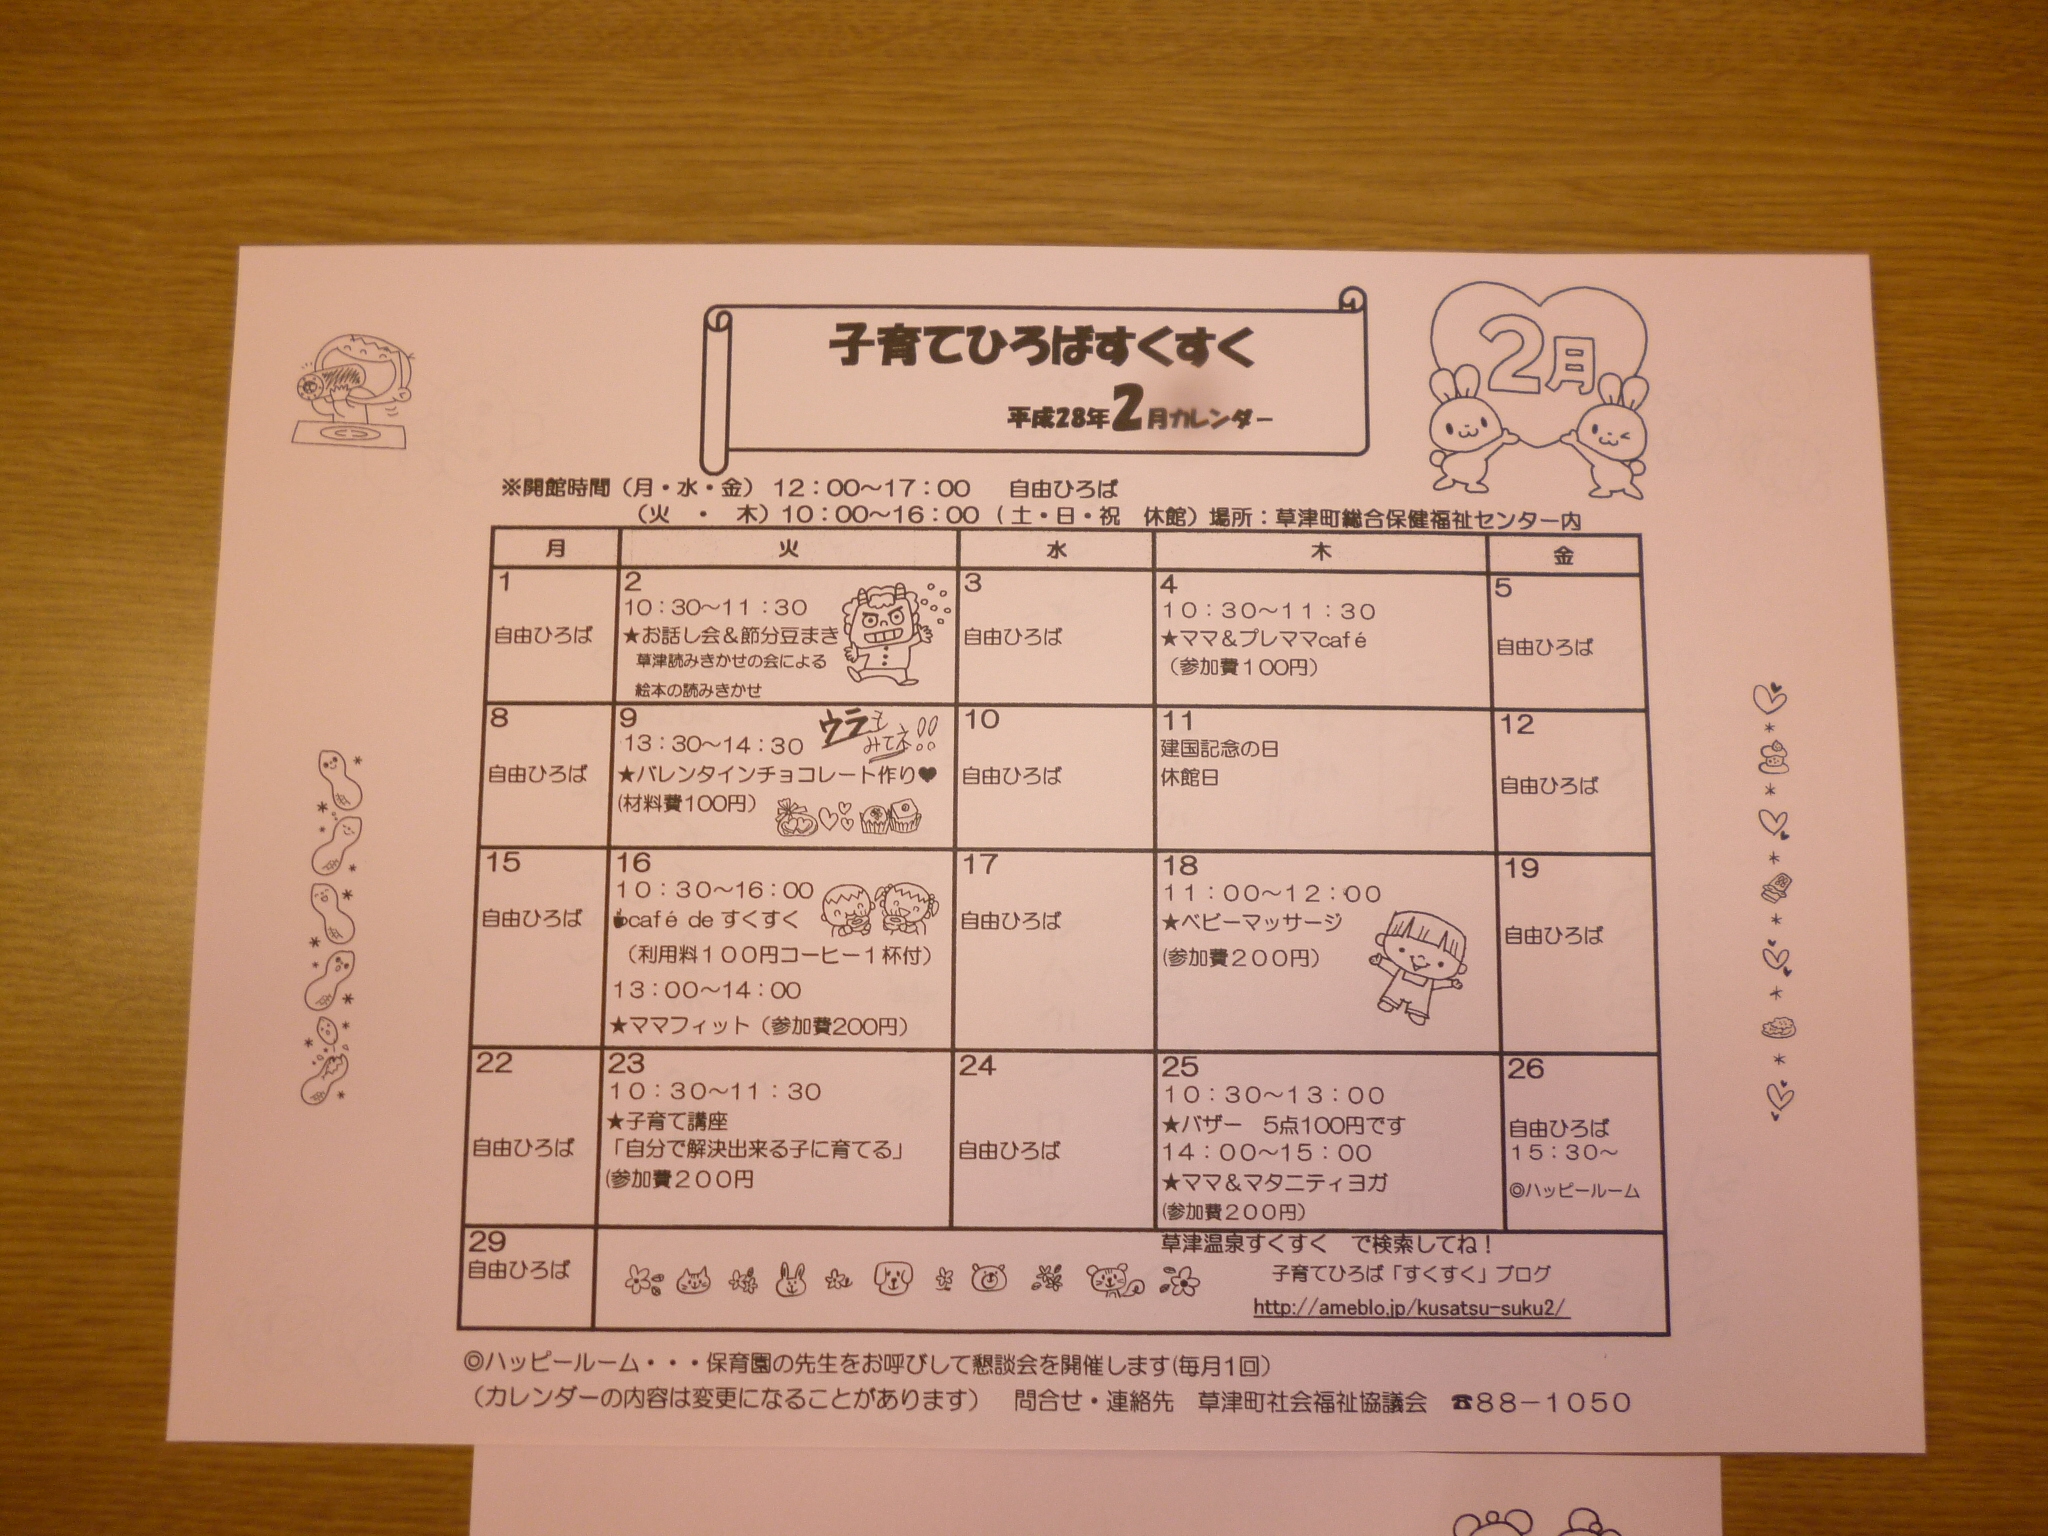 子育てひろばすくすく
平成28年2月カレンダー
2月
※開館時間(月・水・金) 12:00〜17:00 自由ひろば
(火 ・ 木)10:00〜16:00 (土・日・祝 休館) 場所:草津町総合保健福祉センター内
月 火 水 木 金
1
自由ひろば
2
10:30〜11:30
★お話し会&節分豆まき
草津読みきかせの会による
絵本の読みきかせ
3
自由ひろば
4
10:30〜11:30
★ママ&プレママcafé
(参加費100円)
5
自由ひろば
8
自由ひろば
9
13:30〜14:30
ウラも
みてネ!!
★バレンタインチョコレート作り♥
(材料費100円)
10
自由ひろば
11
建国記念の日
休館日
12
自由ひろば
15
自由ひろば
16
10:30〜16:00
☕café de すくすく
(利用料100円コーヒー1杯付)
13:00〜14:00
★ママフィット(参加費200円)
17
自由ひろば
18
11:00〜12:00
★ベビーマッサージ
(参加費200円)
19
自由ひろば
22
自由ひろば
23
10:30〜11:30
★子育て講座
「自分で解決出来る子に育てる」
(参加費200円
24
自由ひろば
25
10:30〜13:00
★バザー 5点100円です
14:00〜15:00
★ママ&マタニティヨガ
(参加費200円)
26
自由ひろば
15:30〜
◎ハッピールーム
29
自由ひろば
草津温泉すくすく で検索してね!
子育てひろば「すくすく」ブログ
http://ameblo.jp/kusatsu-suku2/
◎ハッピールーム・・・保育園の先生をお呼びして懇談会を開催します(毎月1回)
(カレンダーの内容は変更になることがあります) 問合せ・連絡先 草津町社会福祉協議会 ☎88-1050